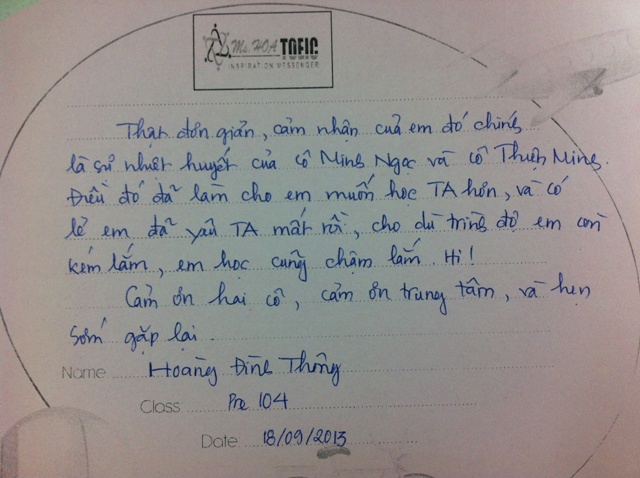 Ms. HOA TOEIC
INSPIRATION MESSENGER
Thật đơn giản, cảm nhận của em đó chính
là sự nhiệt huyết của cô Minh Ngọc và cô Thiện Minh.
Điều đó đã làm cho em muốn học TA hơn, và có
lẽ em đã yêu TA mất rồi, cho dù trình độ em còn
kém lắm, em học cũng chậm lắm. Hi!
Cảm ơn hai cô, cảm ơn trung tâm, và hẹn
sớm gặp lại.
Name Hoàng Đình Thông
Class Pre 104
Date 18/09/2013